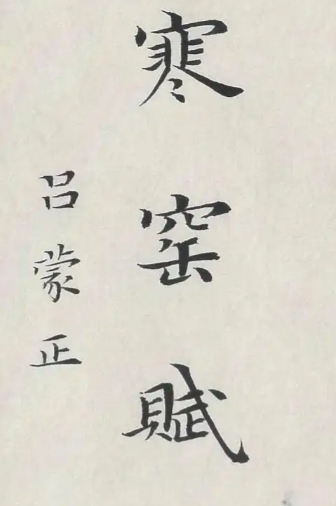 寒窑赋
吕蒙正